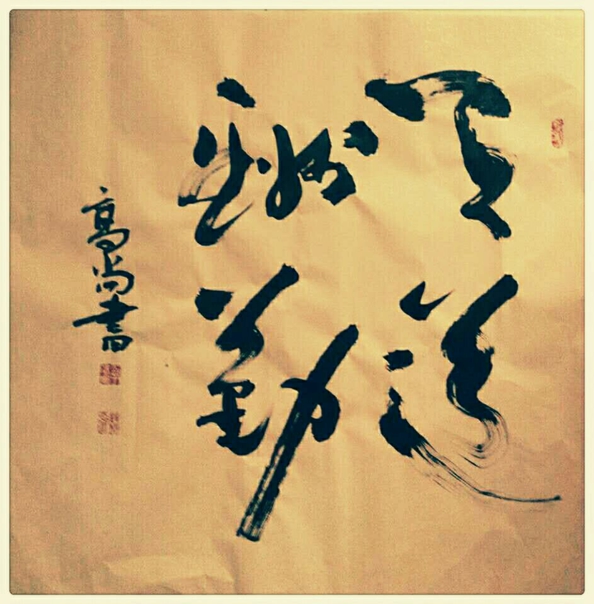 天道
酬勤
高尚書